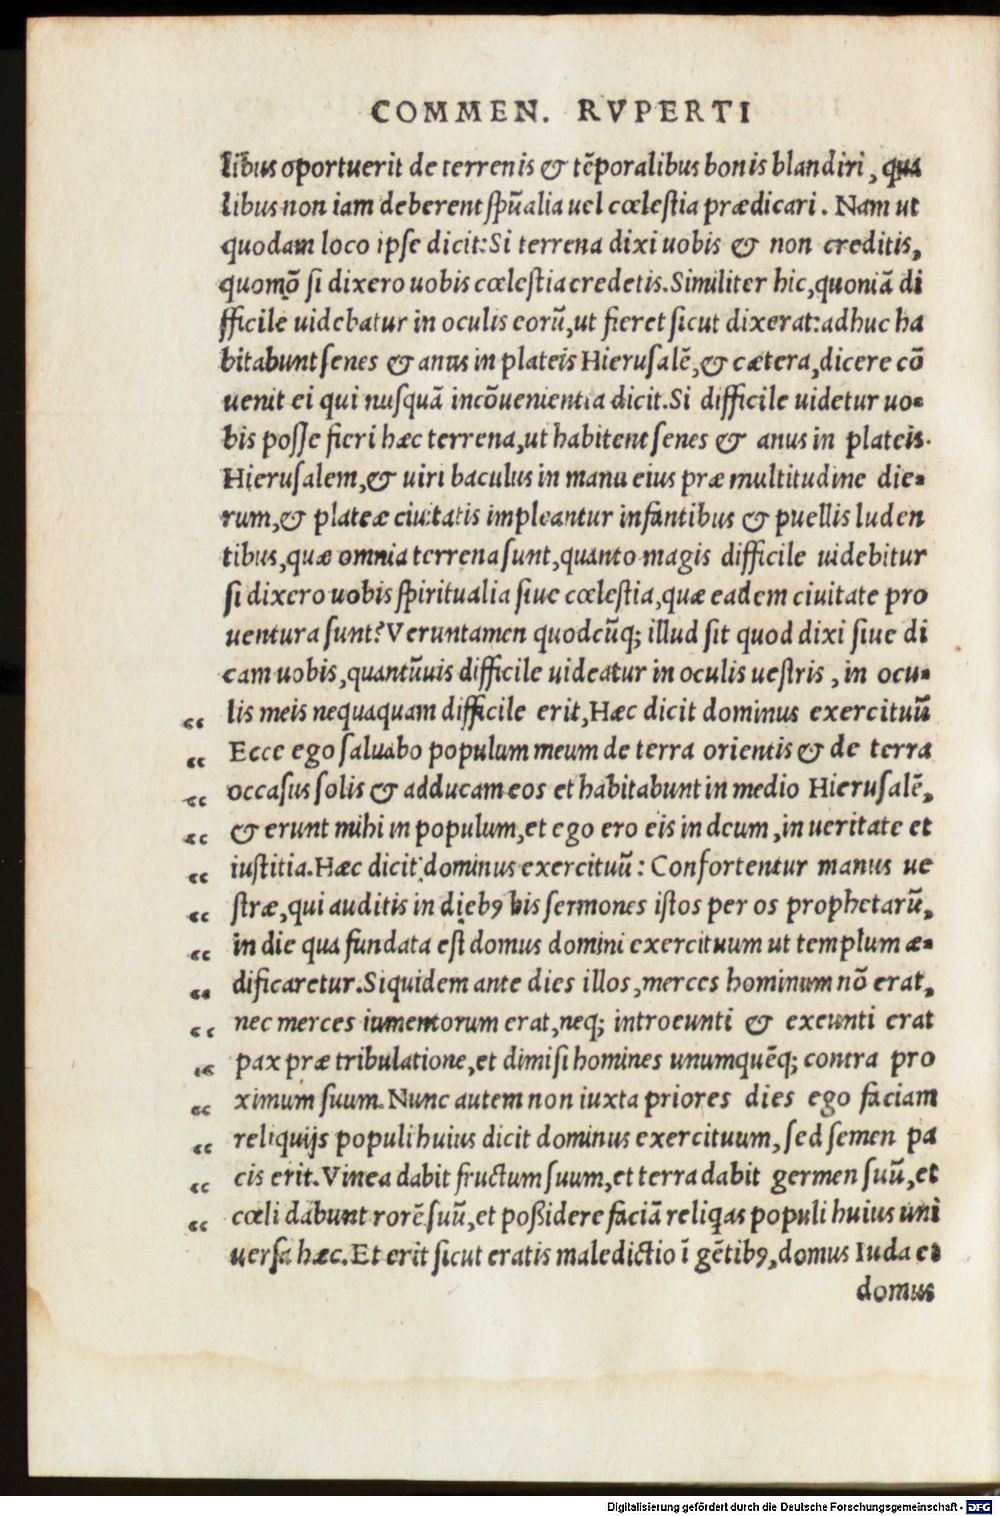 COMMEN. RVPERTI
libus oportuerit de terrenis & tẽporalibus bonis blandiri, qua
libus non iam deberent spũalia uel cœlestia prædicari. Nam ut
quodam loco ipse dicit: Si terrena dixi uobis & non creditis,
quomõ si dixero uobis cœlestia credetis. Similiter hic, quoniã di
fficile uidebatur in oculis eorũ, ut fieret sicut dixerat: adhuc ha
bitabunt senes & anus in plateis Hierusalẽ, & cætera, dicere cõ
uenit ei qui nusquã incõuenientia dicit. Si difficile uidetur uo-
bis posse fieri hæc terrena, ut habitent senes & anus in plateis.
Hierusalem, & uiri baculus in manu eius præ multitudine die-
rum, & plateæ ciuitatis impleantur infantibus & puellis luden
tibus, quæ omnia terrena sunt, quanto magis difficile uidebitur
si dixero uobis spiritualia siue cœlestia, quæ eadem ciuitate pro
uentura sunt? Veruntamen quodcũq; illud sit quod dixi siue di
cam uobis, quantũuis difficile uideatur in oculis uestris, in ocu-
“ lis meis nequaquam difficile erit, Hæc dicit dominus exercituũ
“ Ecce ego saluabo populum meum de terra orientis & de terra
“ occasus solis & adducam eos et habitabunt in medio Hierusalẽ,
“ & erunt mihi in populum, et ego ero eis in deum, in ueritate et
“ iustitia. Hæc dicit dominus exercituũ: Confortentur manus ue
“ stræ, qui auditis in dieb9 his sermones istos per os prophetarũ,
“ in die qua fundata est domus domini exercituum ut templum æ-
“ dificaretur. Siquidem ante dies illos, merces hominum nõ erat,
“ nec merces iumentorum erat, neq; introeunti & exeunti erat
“ pax præ tribulatione, et dimisi homines unumquẽq; contra pro
“ ximum suum. Nunc autem non iuxta priores dies ego faciam
“ reliquijs populi huius dicit dominus exercituum, sed semen pa
“ cis erit. Vinea dabit fructum suum, et terra dabit germen suũ, et
“ cœli dabunt rorẽ suũ, et possidere faciã reliqas populi huius uni
uersa hæc. Et erit sicut eratis maledictio ĩ gẽtib9, domus Iuda et
domus
Digitalisierung gefördert durch die Deutsche Forschungsgemeinschaft - DFG